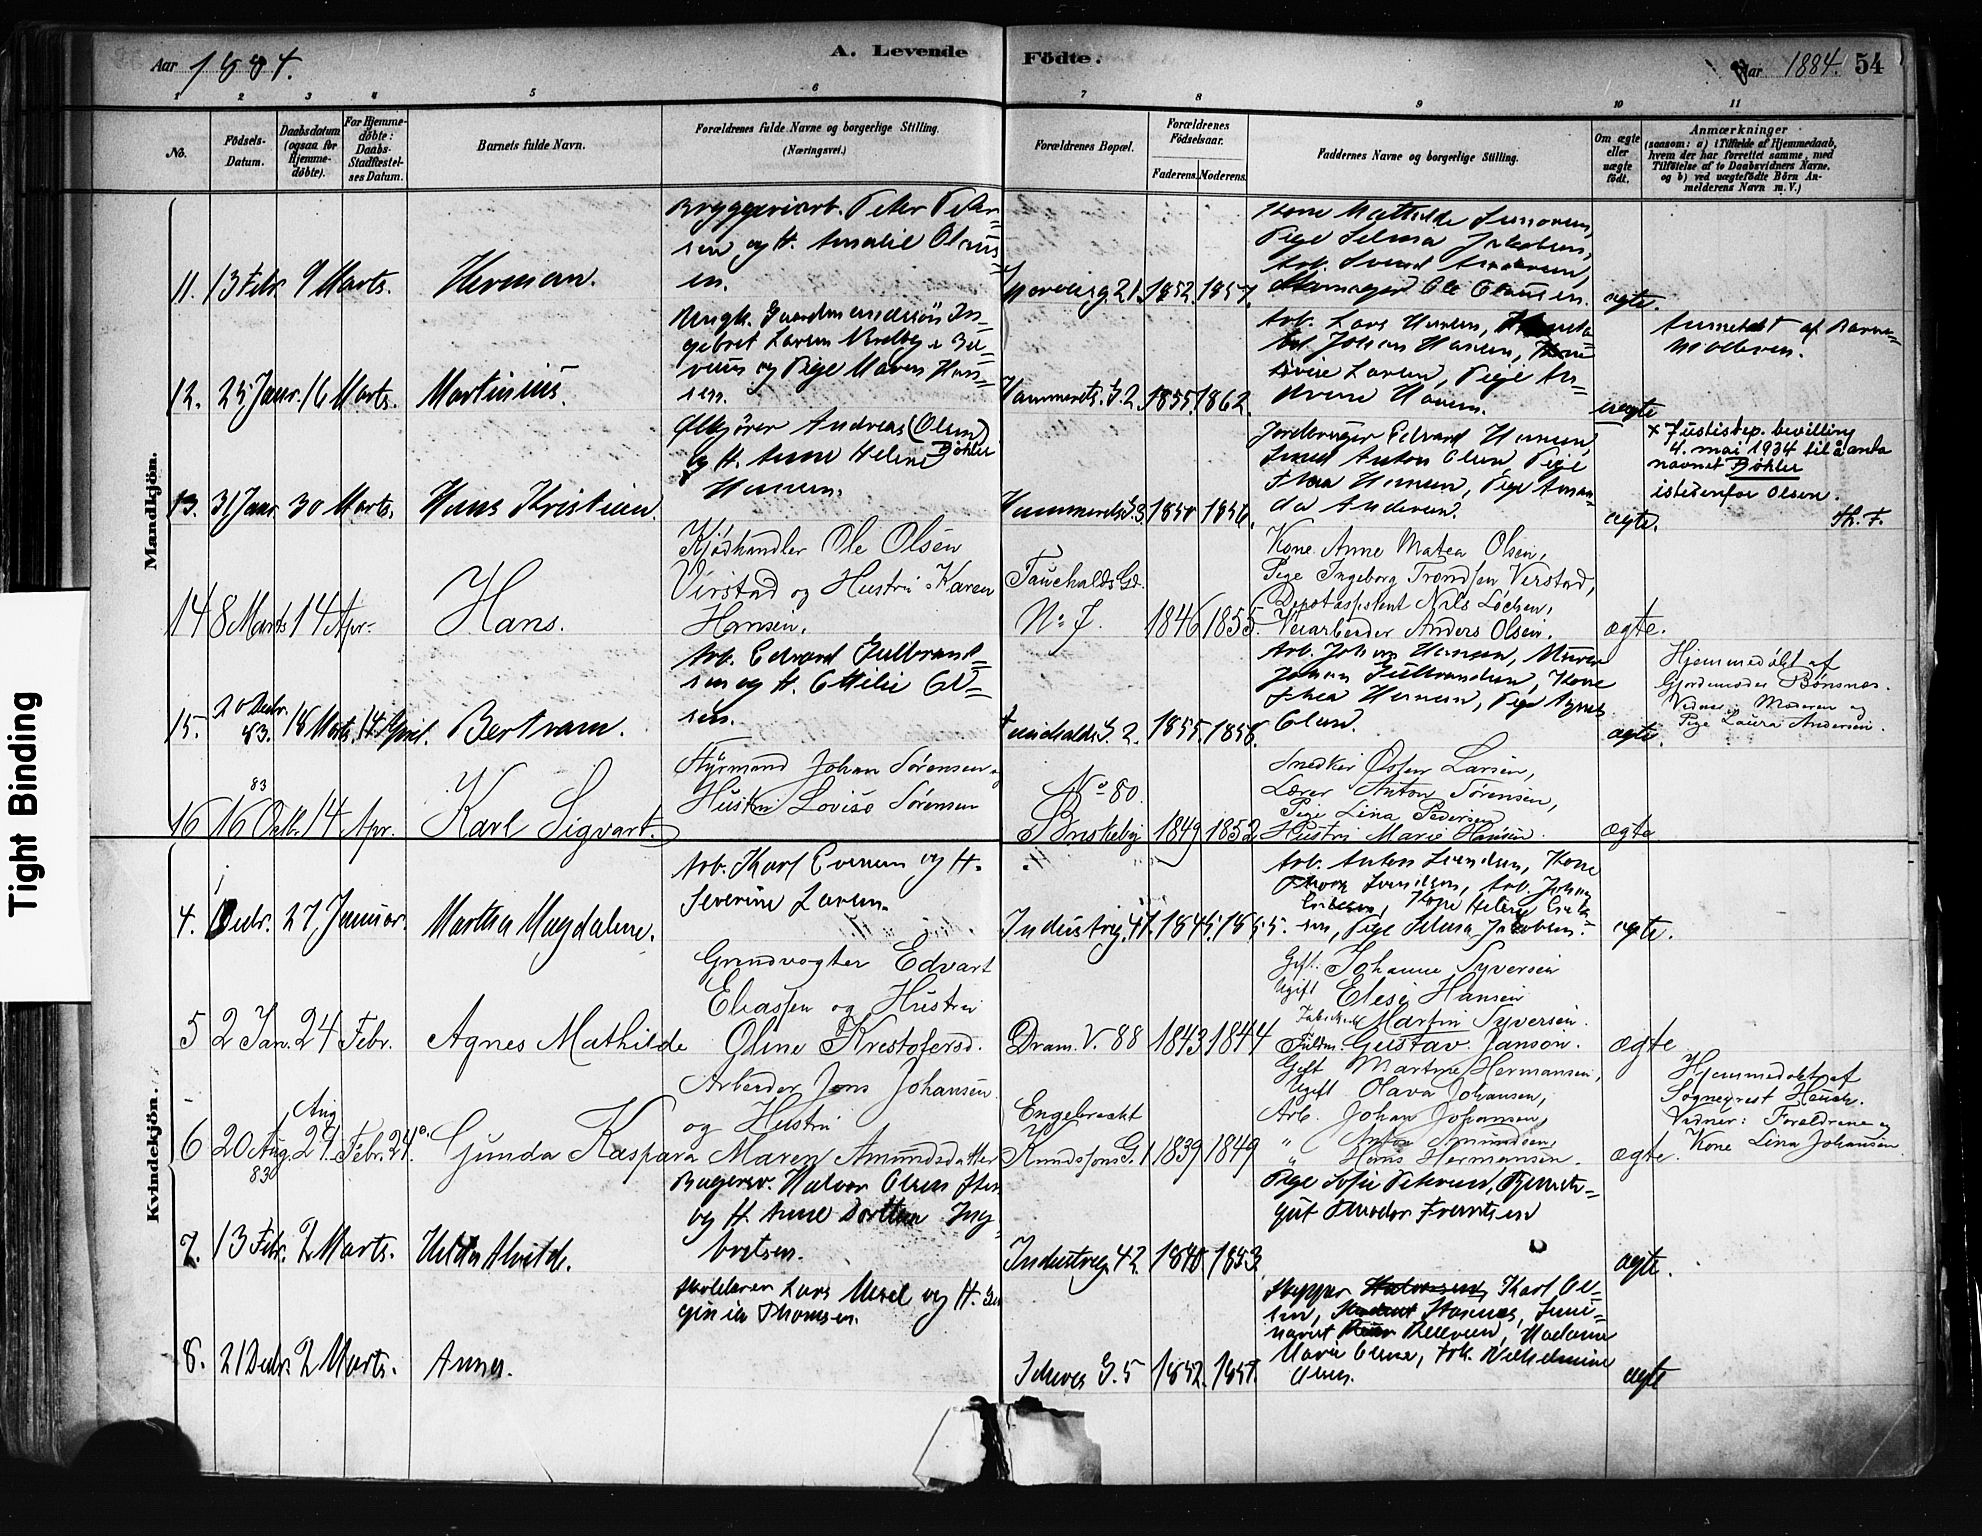 Aar 1884.
A. Levende
Födte.
Aar 1884. 54
1 2 3 4 5 6 7 8 9 10 11
No.
Födsels-
Datum.
Daabsdatum
(ogsaa for
Hjemme-
døbte).
For Hjemme-
døbte:
Daabs-
Stadfæstel-
ses Datum.
Barnets fulde Navn.
Forældrenes fulde Navne og borgerlige Stilling.
(Næringsvei.)
Forældrenes Bopæl.
Forældrenes
Födselsaar.
Faderens. Moderens.
Faddernes Navne og borgerlige Stilling.
Om ægte
eller
uægte
født.
Anmærkninger
(saasom: a) i Tilfælde af Hjemmedaab,
hvem der har forrettet samme, med
Tilføielse af to Daabsvidners Navne,
og b) ved uægtefødte Börn An-
melderens Navn m. V.)
Mandkjön.
11. 13 Febr. 9 Marts. Herman.
Bryggeriarb. Petter Peter-
sen og H. Amalie Olaus-
en.
21. 1852. 1857.
Kone Mathilde
Pige Selma Jakobsen,
Arb.
Ole Olausen.
ægte.
12. 25 Janr. 16 Marts. Martinius.
Ungk. Gaardmandssön In-
gebret Larsen
og Pige Maren Han-
sen.
Hammerst. G. 2. 1855. 1862.
Arb. Lars Hansen,
Johan Hansen,
Larsen, Pige
Hansen.
uægte
Anmeldt af Barne-
moderen.
13. 31 Janr. 30 Marts. Hans Kristian.
Ølkjörer Andreas (Olsen)
Bøhler
og H. Anne Helene
Hansen.
Hammersts G. 3. 1856.
Edvard Hansen,
Smed Anton Olsen, Pige
Thea Hansen, Pige Aman-
da Andersen.
ægte.
x Justisdep. bevilling
4. mai 1934 til å anta
navnet Bøhler
istedenfor Olsen.
Th. F.
14 8 Marts 14 Apr. Hans.
Kjødhandler Ole Olsen
Virstad og Hustru Karen
Hansen.
Fauchalds Gd.
No 7. 1846 1855.
Kone Anne Matea Olsen,
Pige Ingeborg Trondsen Verstad,
Depotassistent Nils Lochen,
Veiarbeider Anders Olsen.
ægte.
15. 20 Decbr. 83. 18 Marts. 14 April. Bertram.
Arb. Edvard Gulbrand-
sen og H. Ottilie Ol-
sen.
Fauchalds G. 2. 1855. 1856.
Arb. Johan Hansen, Murer
Johan Gulbrandsen, Kone
Thea Hansen, Pige Agnes
Olsen.
ægte.
Hjemmedøbt af
Gjordemoder Bönsnes.
Vidner: Moderen og
Pige Laura Andersen.
16 83 16 Octbr. 14 Apr. Karl Sigvart.
Styrmand Johan Sörensen og
Hustru Lovise Sörensen
No 80.
Briskeby 1849 1852
Snedker Osten Larsen,
Lærer Anton Sörensen,
Pige Lina Pedersen
Hustru Marie Hansen.
ægte
Kvindekjön.
4. 1 Decbr. 27 Januar. Martha Magdalene.
Arb. Karl Evensen og H.
Severine Larsen.
Industrig. 41. 1845. 1855.
Arb. Anton Svendsen, Kone
Thora Svendsen, Arb. Johan
Eriksen, Kone Helene Erik-
sen, Pige Selma Jakobsen.
ægte.
5 2 Jan. 24 Febr. Agnes Mathilde
Grundvogter Edvart
Eliassen og Hustru
Oline Krestofersd.
Dram. V. 88 1843 1844
Gift. Johanne Syversen
Ugift Elese Hansen
Martin Syversen.
Gustav Janson.
ægte
6 20 Aug. 83 Aug 27. Febr. 24. Gunda Kaspara
Arbeider Jens Johansen
og Hustru
Maren Amundsdatter
Engebrecht
Knudssons G. 1 1839 1849
Gift Martine Hermansen,
Ugift Olava Johansen,
Arb. Johan Johansen,
" Anton Amundsen,
" Hans Hermansen.
ægte.
Hjemmedöbt af
Sogneprest Hauch.
Vidner: Forældrene og
Kone Lina Johansen
7. 13 Febr. 2 Marts. Hilda Alvilde.
Bagersv. Halvor Olsen
og H. Anne Dorthea Ing-
bretsen.
Industrig. 42. 1840. 1853.
Pige Sofie Petersen,
gut Teodor Frantsen
ægte.
8. 21 Decbr. 2 Marts. Anna.
Skolelærer Lars Musel og H.
Thomsen.
Schives G. 5 1852. 1857.
Karl Ol-
sen,
Madame
Marie Olsen, Frk. Vilhelmine
Olsen.
ægte
Tight Binding